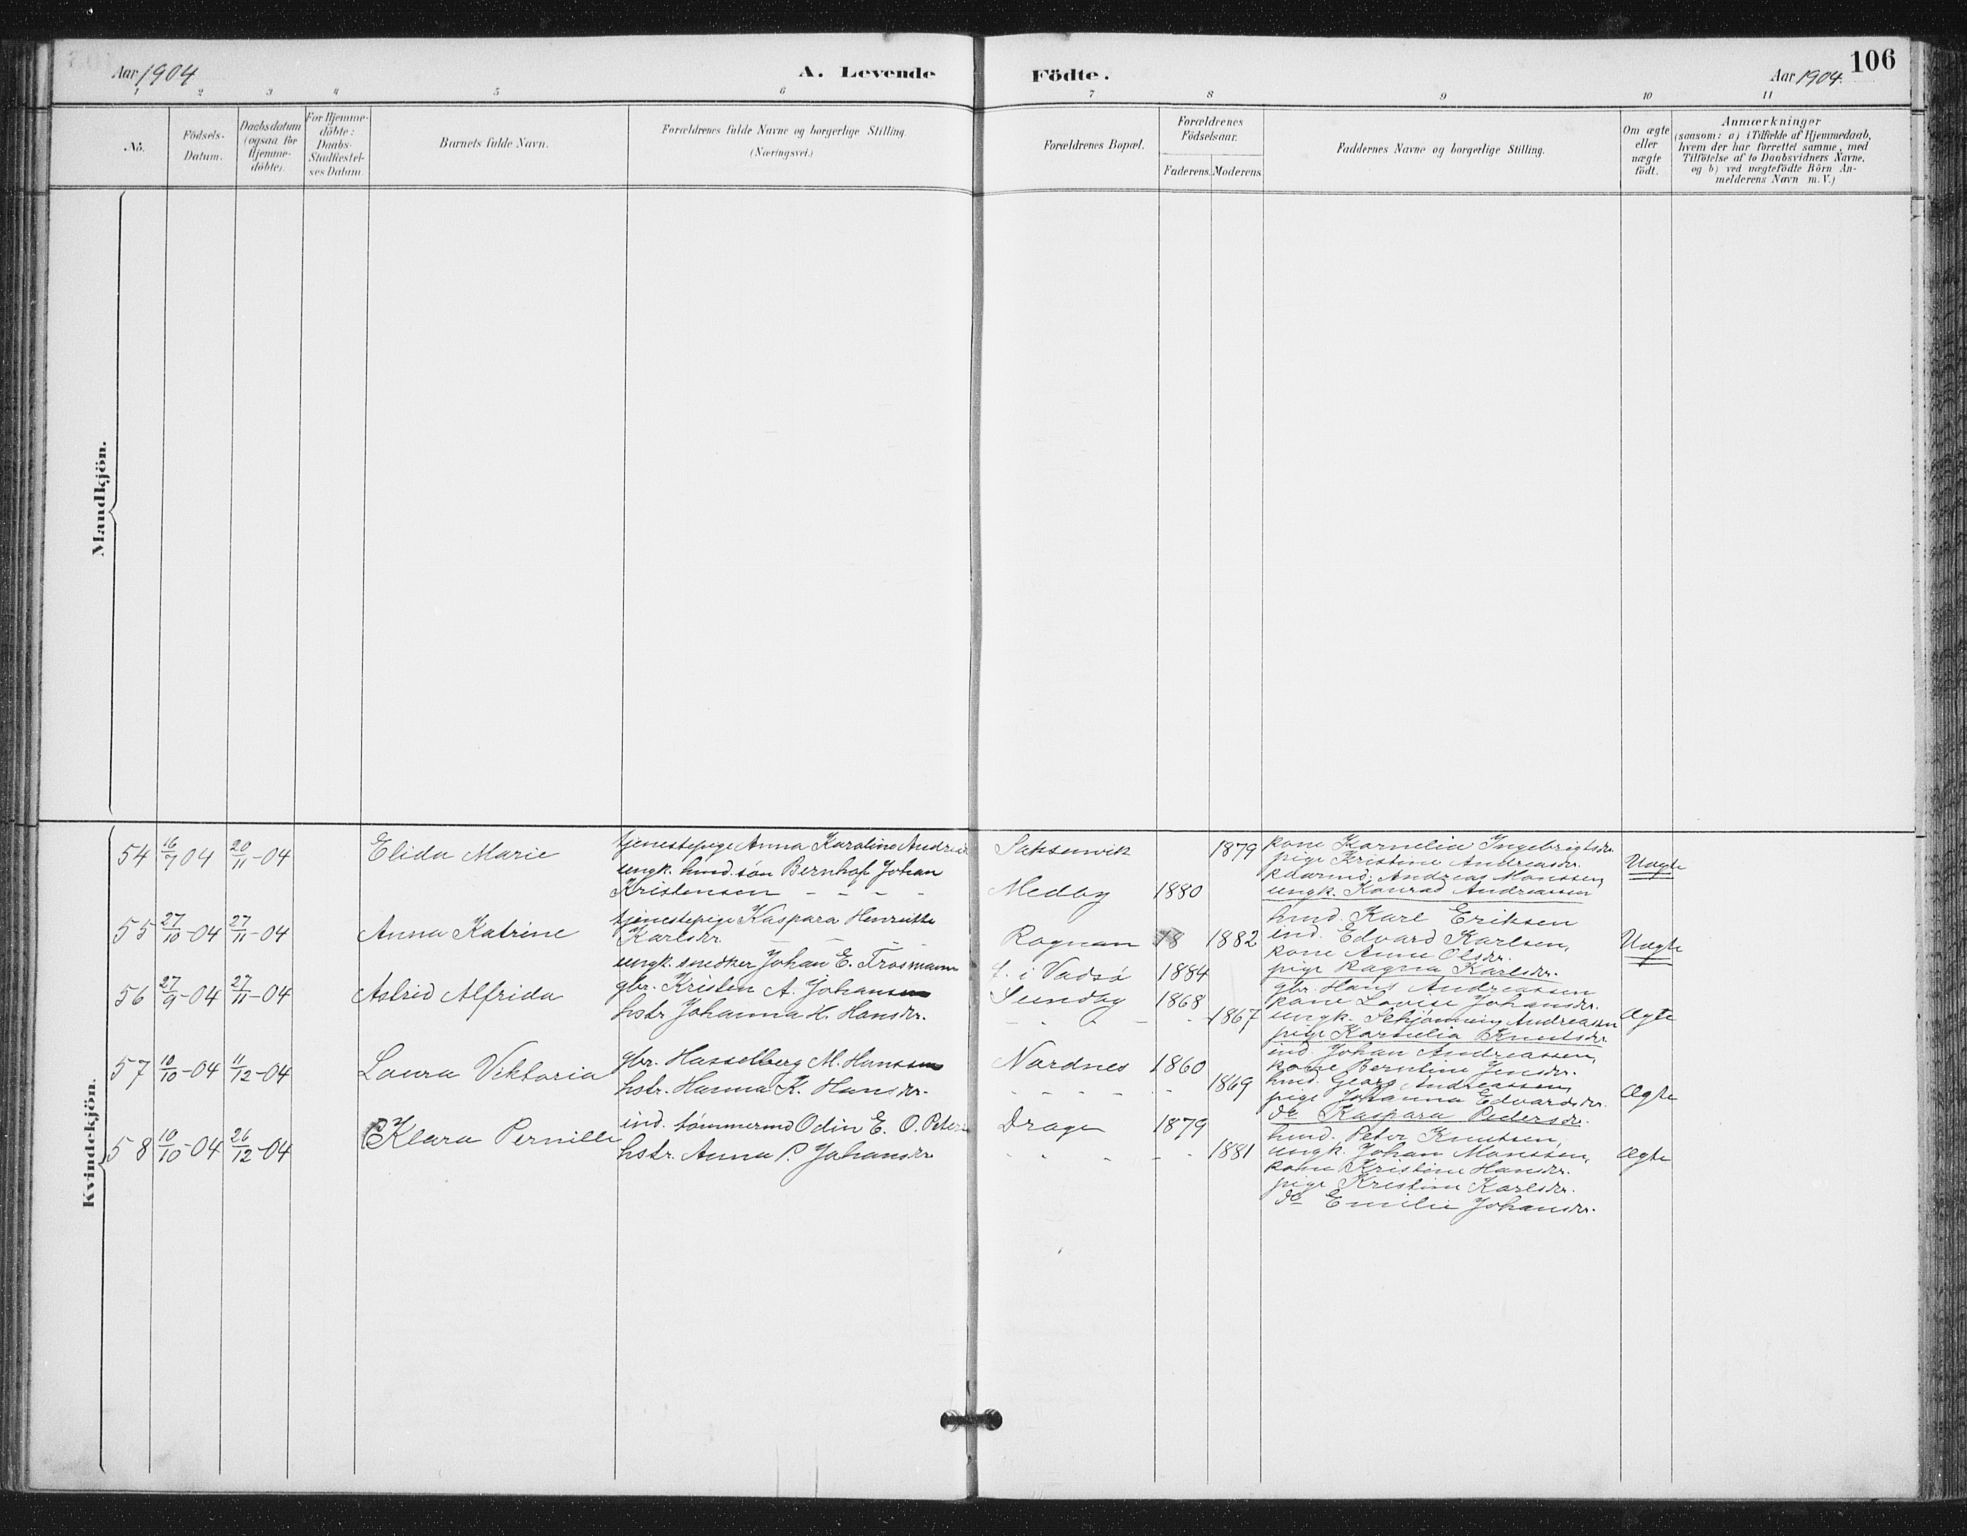 Aar 1904 A. Levende Födte. Aar 1904. 106
1 2 3 4 5 6 7 8 9 10 11
No.
Födsels-Datum.
Daabsdatum (ogsaa for Hjemme-döbte).
For Hjemme-döbte: Daabs-Stadfæstel-ses Datum.
Barnets fulde Navn.
Forældrenes fulde Navne og borgerlige Stilling.
(Næringsvei.)
Forældrenes Bopæl.
Forældrenes Födselsaar.
Faderens. Moderens.
Faddernes Navne og borgerlige Stilling.
Om ægte eller uægte födt.
Anmærkninger
(saasom: a) i Tilfælde af Hjemmedaab,
hvem der har forrettet samme, med
Tilföielse af to Daabsvidners Navne,
og b) ved uægtefödte Börn An-
melderens Navn m. V.)
Mandkjön.
Kvindekjön.
54 16/7 04 20/11-04 Elida Marie
tjenestepige Anna Karoline
ungk. hmd. søn Bernhof Johan
Kristensen - - - -
Saksenvik 1879
Medby 1880
kone Kornelia Ingebrigtsdr.
pige Kristine Andreasdr.
Andreas Monssen,
ungk. Konrad Andreassen
Uægte
55 27/10-04 27/11-04 Anna Katrine
tjenestepige Kaspara Henrikke
Karlsdr. - - -
ungk. snedker Johan E. Trosmann
Rognan 18 1882
f. i Vadsø 1884
hmd. Karl Eriksen
ind. Edvard Karlsen,
kone Anne Olsdr.
pige Ragna Karlsdr.
Uægte
56 27/9-04 27/11-04 Astrid Alfrida
gbr. Kristen A. Johansen
hstr. Johanna H. Hansdr.
Sundby 1868
- - - - - 1867
gbr. Hans Andreassen
kone Lovise Johansdr.
ungk. Schjønning Andreassen
pige Kornelia Knutsdr.
Ægte
57 10/10-04 11/12-04 Laura Viktoria
gbr. Hasselberg M. Hanssen
hstr. Hanna K. Hansdr.
Nordnes 1860
- - - - - 1869
ind. Johan Andreassen,
kone Berntine Jensdr.
hmd. Georg Andreassen,
pige Johanna Edvardsdr.
do Kaspara Pedersdr.
Ægte
58 10/10-04 26/12-04 Klara Pernille
ind. tømmermd Odin E. O.
hstr. Anna P. Johansdr.
Drage 1879
- - - - - 1881
hmd. Peter Knutsen,
ungk. Johan Monssen,
kone Kristine Hansdr.
pige Kristine Karlsdr.
do Emilie Johansdr.
Ægte